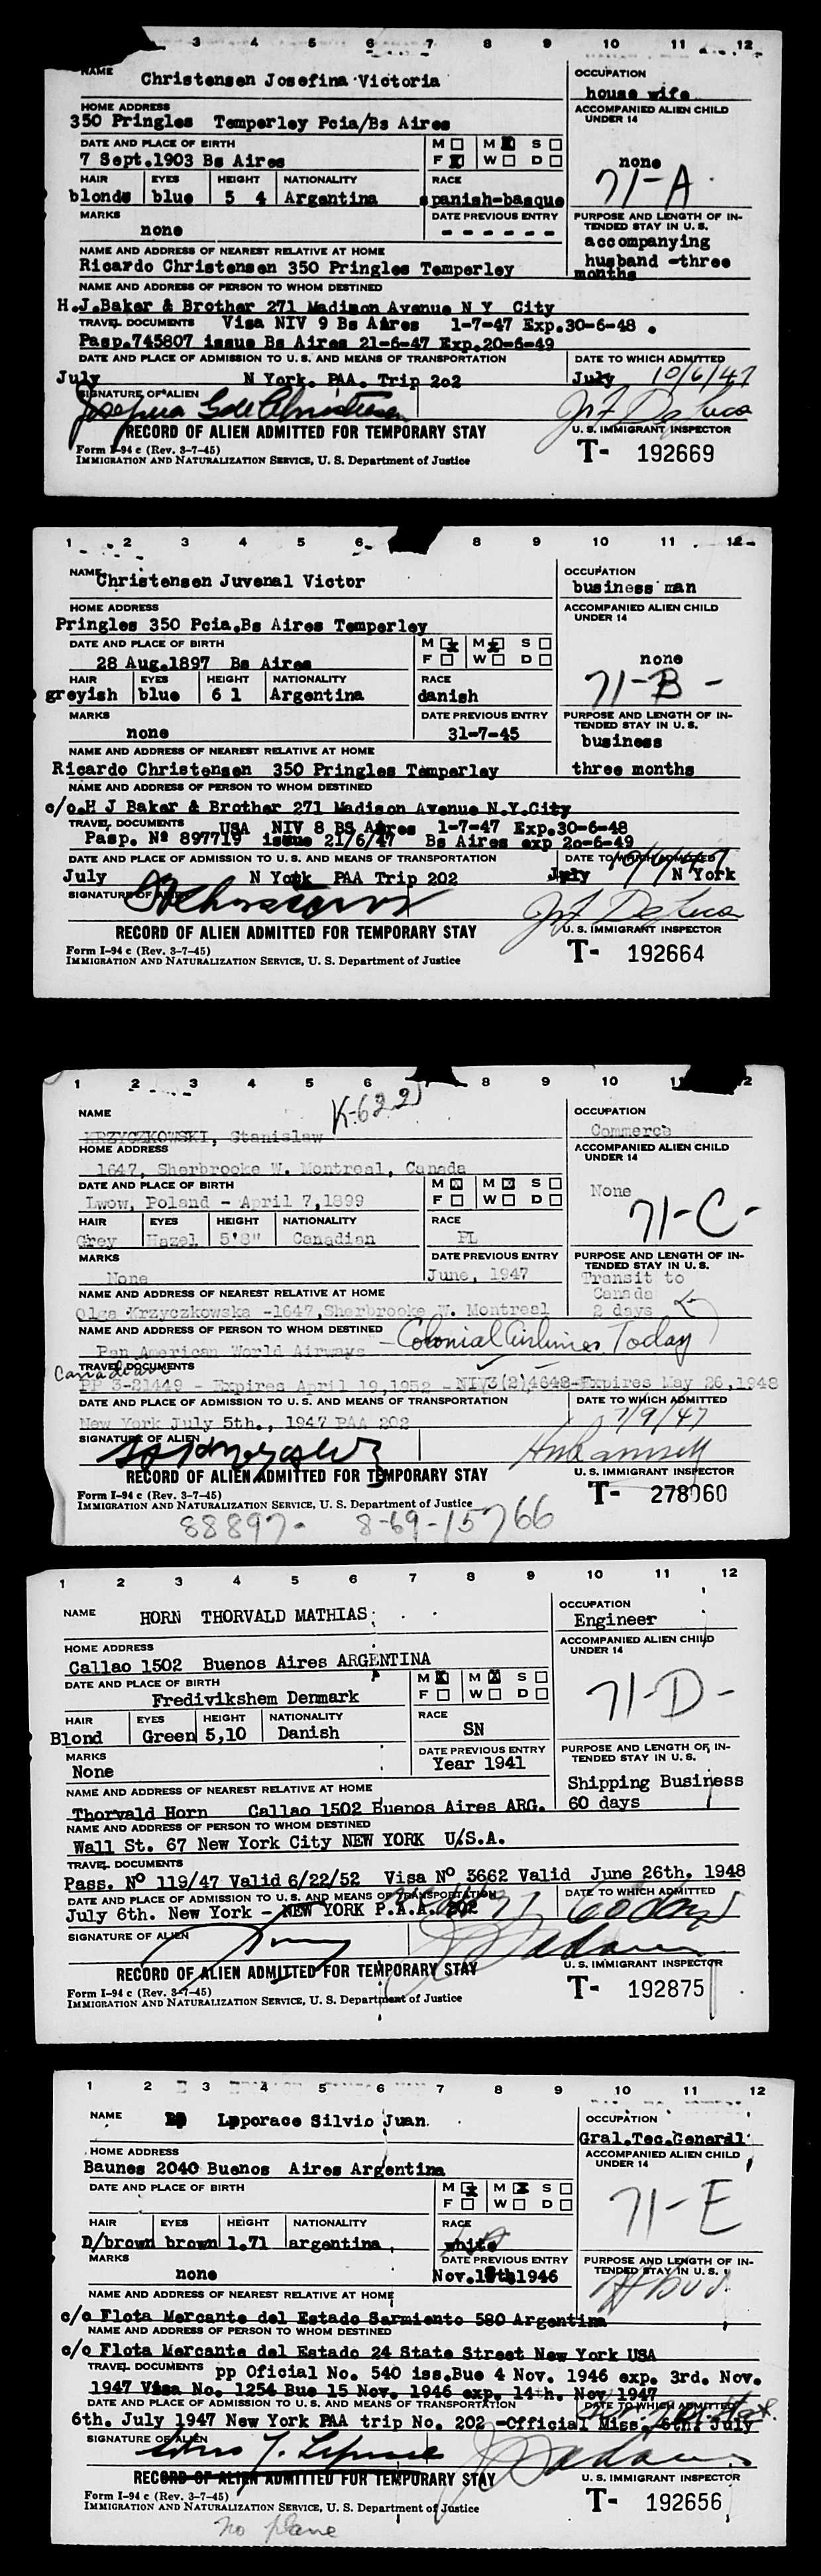 3 4 5 6 7 8 9 10 11 12
NAME Christensen Josefina Victoria
OCCUPATION house wife
HOME ADDRESS
350 Pringles Temperley Pcia/Bs Aires
ACCOMPANIED ALIEN CHILD UNDER 14
none
71-A
DATE AND PLACE OF BIRTH
7 Sept.1903 Bs Aires
M M S
F W D
HAIR EYES HEIGHT NATIONALITY RACE
blonde blue 5 4 Argentina spanish-basque
MARKS
none
DATE PREVIOUS ENTRY
- - - - - -
PURPOSE AND LENGTH OF INTENDED STAY IN U. S.
accompanying
husband -three
months
NAME AND ADDRESS OF NEAREST RELATIVE AT HOME
Ricardo Christensen 350 Pringles Temperley
NAME AND ADDRESS OF PERSON TO WHOM DESTINED
H.J.Baker & Brother 271 Madison Avenue N Y City
TRAVEL DOCUMENTS Visa NIV 9 Bs Aires 1-7-47 Exp.30-6-48 .
Pasp.745807 issue Bs Aires 21-6-47 Exp.20-6-49
DATE AND PLACE OF ADMISSION TO U. S. AND MEANS OF TRANSPORTATION
DATE TO WHICH ADMITTED
July N York. PAA. Trip 202
July 10/6/47
SIGNATURE OF ALIEN
RECORD OF ALIEN ADMITTED FOR TEMPORARY STAY
U. S. IMMIGRANT INSPECTOR
Form I-94 c (Rev. 3-7-45)
IMMIGRATION AND NATURALIZATION SERVICE, U. S. Department of Justice
T- 192669
1 2 3 4 5 6 8 9 10 11 12
NAME Christensen Juvenal Victor
OCCUPATION
business man
HOME ADDRESS
Pringles 350 Pcia.Bs Aires Temperley
ACCOMPANIED ALIEN CHILD UNDER 14
none
71-B-
DATE AND PLACE OF BIRTH
28 Aug.1897 Bs Aires
M M S
F W D
HAIR EYES HEIGHT NATIONALITY RACE
greyish blue 6 1 Argentina danish
MARKS
none
DATE PREVIOUS ENTRY
31-7-45
PURPOSE AND LENGTH OF INTENDED STAY IN U. S.
business
three months
NAME AND ADDRESS OF NEAREST RELATIVE AT HOME
Ricardo Christensen 350 Pringles Temperley
NAME AND ADDRESS OF PERSON TO WHOM DESTINED
c/o.H J Baker & Brother 271 Madison Avenue N.Y.City
TRAVEL DOCUMENTS USA NIV 8 BS Aires 1-7-47 Exp.30-6-48
Pasp. Nº 897719 issue 21/6/47 Bs Aires exp 20-6-49
DATE AND PLACE OF ADMISSION TO U. S. AND MEANS OF TRANSPORTATION
DATE TO WHICH ADMITTED
July N York PAA Trip 202
July N York
SIGNATURE OF ALIEN
RECORD OF ALIEN ADMITTED FOR TEMPORARY STAY
U. S. IMMIGRANT INSPECTOR
Form I-94 c (Rev. 3-7-45)
IMMIGRATION AND NATURALIZATION SERVICE, U. S. Department of Justice
T- 192664
1 2 3 4 5 6 8 9 10 11 12
K-622
NAME
KRZYCZKOWSKI, Stanislaw
OCCUPATION
Commerce
HOME ADDRESS
1647, Sherbrooke W. Montreal, Canada
ACCOMPANIED ALIEN CHILD UNDER 14
None
71-C-
DATE AND PLACE OF BIRTH
Lwow, Poland - April 7,1899
M M S
F W D
HAIR EYES HEIGHT NATIONALITY RACE
Grey Hazel 5'8" Canadian PL
MARKS
None
DATE PREVIOUS ENTRY
June, 1947
PURPOSE AND LENGTH OF INTENDED STAY IN U. S.
Transit to
Canada
2 days
NAME AND ADDRESS OF NEAREST RELATIVE AT HOME
Olga Krzyczkowska -1647,Sherbrooke W. Montreal
NAME AND ADDRESS OF PERSON TO WHOM DESTINED
Pan American World Airways - Colonial Airlines Today
Canadian
TRAVEL DOCUMENTS
PP 3-21449 - Expires April 19,1952 - NIV3(2)4648-Expires May 26,1948
DATE AND PLACE OF ADMISSION TO U. S. AND MEANS OF TRANSPORTATION
DATE TO WHICH ADMITTED
New York July 5th., 1947 PAA 202
7/9/47
SIGNATURE OF ALIEN
RECORD OF ALIEN ADMITTED FOR TEMPORARY STAY
U. S. IMMIGRANT INSPECTOR
Form I-94 c (Rev. 3-7-45)
IMMIGRATION AND NATURALIZATION SERVICE, U. S. Department of Justice
T- 278060
88897- 8-69-15766
1 2 3 4 5 6 7 8 9 10 11 12
NAME HORN THORVALD MATHIAS
OCCUPATION
Engineer
HOME ADDRESS
Callao 1502 Buenos Aires ARGENTINA
ACCOMPANIED ALIEN CHILD UNDER 14
71-D-
DATE AND PLACE OF BIRTH
Fredivikshem Denmark
M M S
F W D
HAIR EYES HEIGHT NATIONALITY RACE
Blond Green 5,10 Danish SN
MARKS
None
DATE PREVIOUS ENTRY
Year 1941
PURPOSE AND LENGTH OF INTENDED STAY IN U. S.
Shipping Business
60 days
NAME AND ADDRESS OF NEAREST RELATIVE AT HOME
Thorvald Horn Callao 1502 Buenos Aires ARG.
NAME AND ADDRESS OF PERSON TO WHOM DESTINED
Wall St. 67 New York City NEW YORK U/S.A.
TRAVEL DOCUMENTS
Pass. Nº 119/47 Valid 6/22/52 Visa Nº 3662 Valid June 26th. 1948
DATE AND PLACE OF ADMISSION TO U. S. AND MEANS OF TRANSPORTATION
DATE TO WHICH ADMITTED
July 6th. New York - NEW YORK P.A.A. 202
60 days
SIGNATURE OF ALIEN
RECORD OF ALIEN ADMITTED FOR TEMPORARY STAY
U. S. IMMIGRANT INSPECTOR
Form I-94 c (Rev. 3-7-45)
IMMIGRATION AND NATURALIZATION SERVICE, U. S. Department of Justice
T- 192875
1 2 3 4 5 6 7 8 9 10 11 12
NAME Lpporace Silvio Juan.
OCCUPATION
Gral.Tec.General
HOME ADDRESS
Baunes 2040 Buenos Aires Argentina
ACCOMPANIED ALIEN CHILD UNDER 14
71-E
DATE AND PLACE OF BIRTH
M M S
F W D
HAIR EYES HEIGHT NATIONALITY RACE
D/brown brown 1.71 argentina, white
MARKS
none
DATE PREVIOUS ENTRY
Nov.18th1946
PURPOSE AND LENGTH OF INTENDED STAY IN U. S.
NAME AND ADDRESS OF NEAREST RELATIVE AT HOME
c/o Flota Mercante del Estado Sarmiento 580 Argentina
NAME AND ADDRESS OF PERSON TO WHOM DESTINED
c/o Flota Mercante del Estado 24 State Street New York USA
TRAVEL DOCUMENTS pp Oficial No. 540 iss.Bue 4 Nov. 1946 exp. 3rd. Nov.
1947 Visa No. 1254 Bue 15 Nov. 1946 exp. 14th. Nov 1947
DATE AND PLACE OF ADMISSION TO U. S. AND MEANS OF TRANSPORTATION
DATE TO WHICH ADMITTED
6th. July 1947 New York PAA trip No. 202 -Official Miss. 6th. July
SIGNATURE OF ALIEN
RECORD OF ALIEN ADMITTED FOR TEMPORARY STAY
U. S. IMMIGRANT INSPECTOR
Form I-94 c (Rev. 3-7-45)
IMMIGRATION AND NATURALIZATION SERVICE, U. S. Department of Justice
T- 192656
no plane